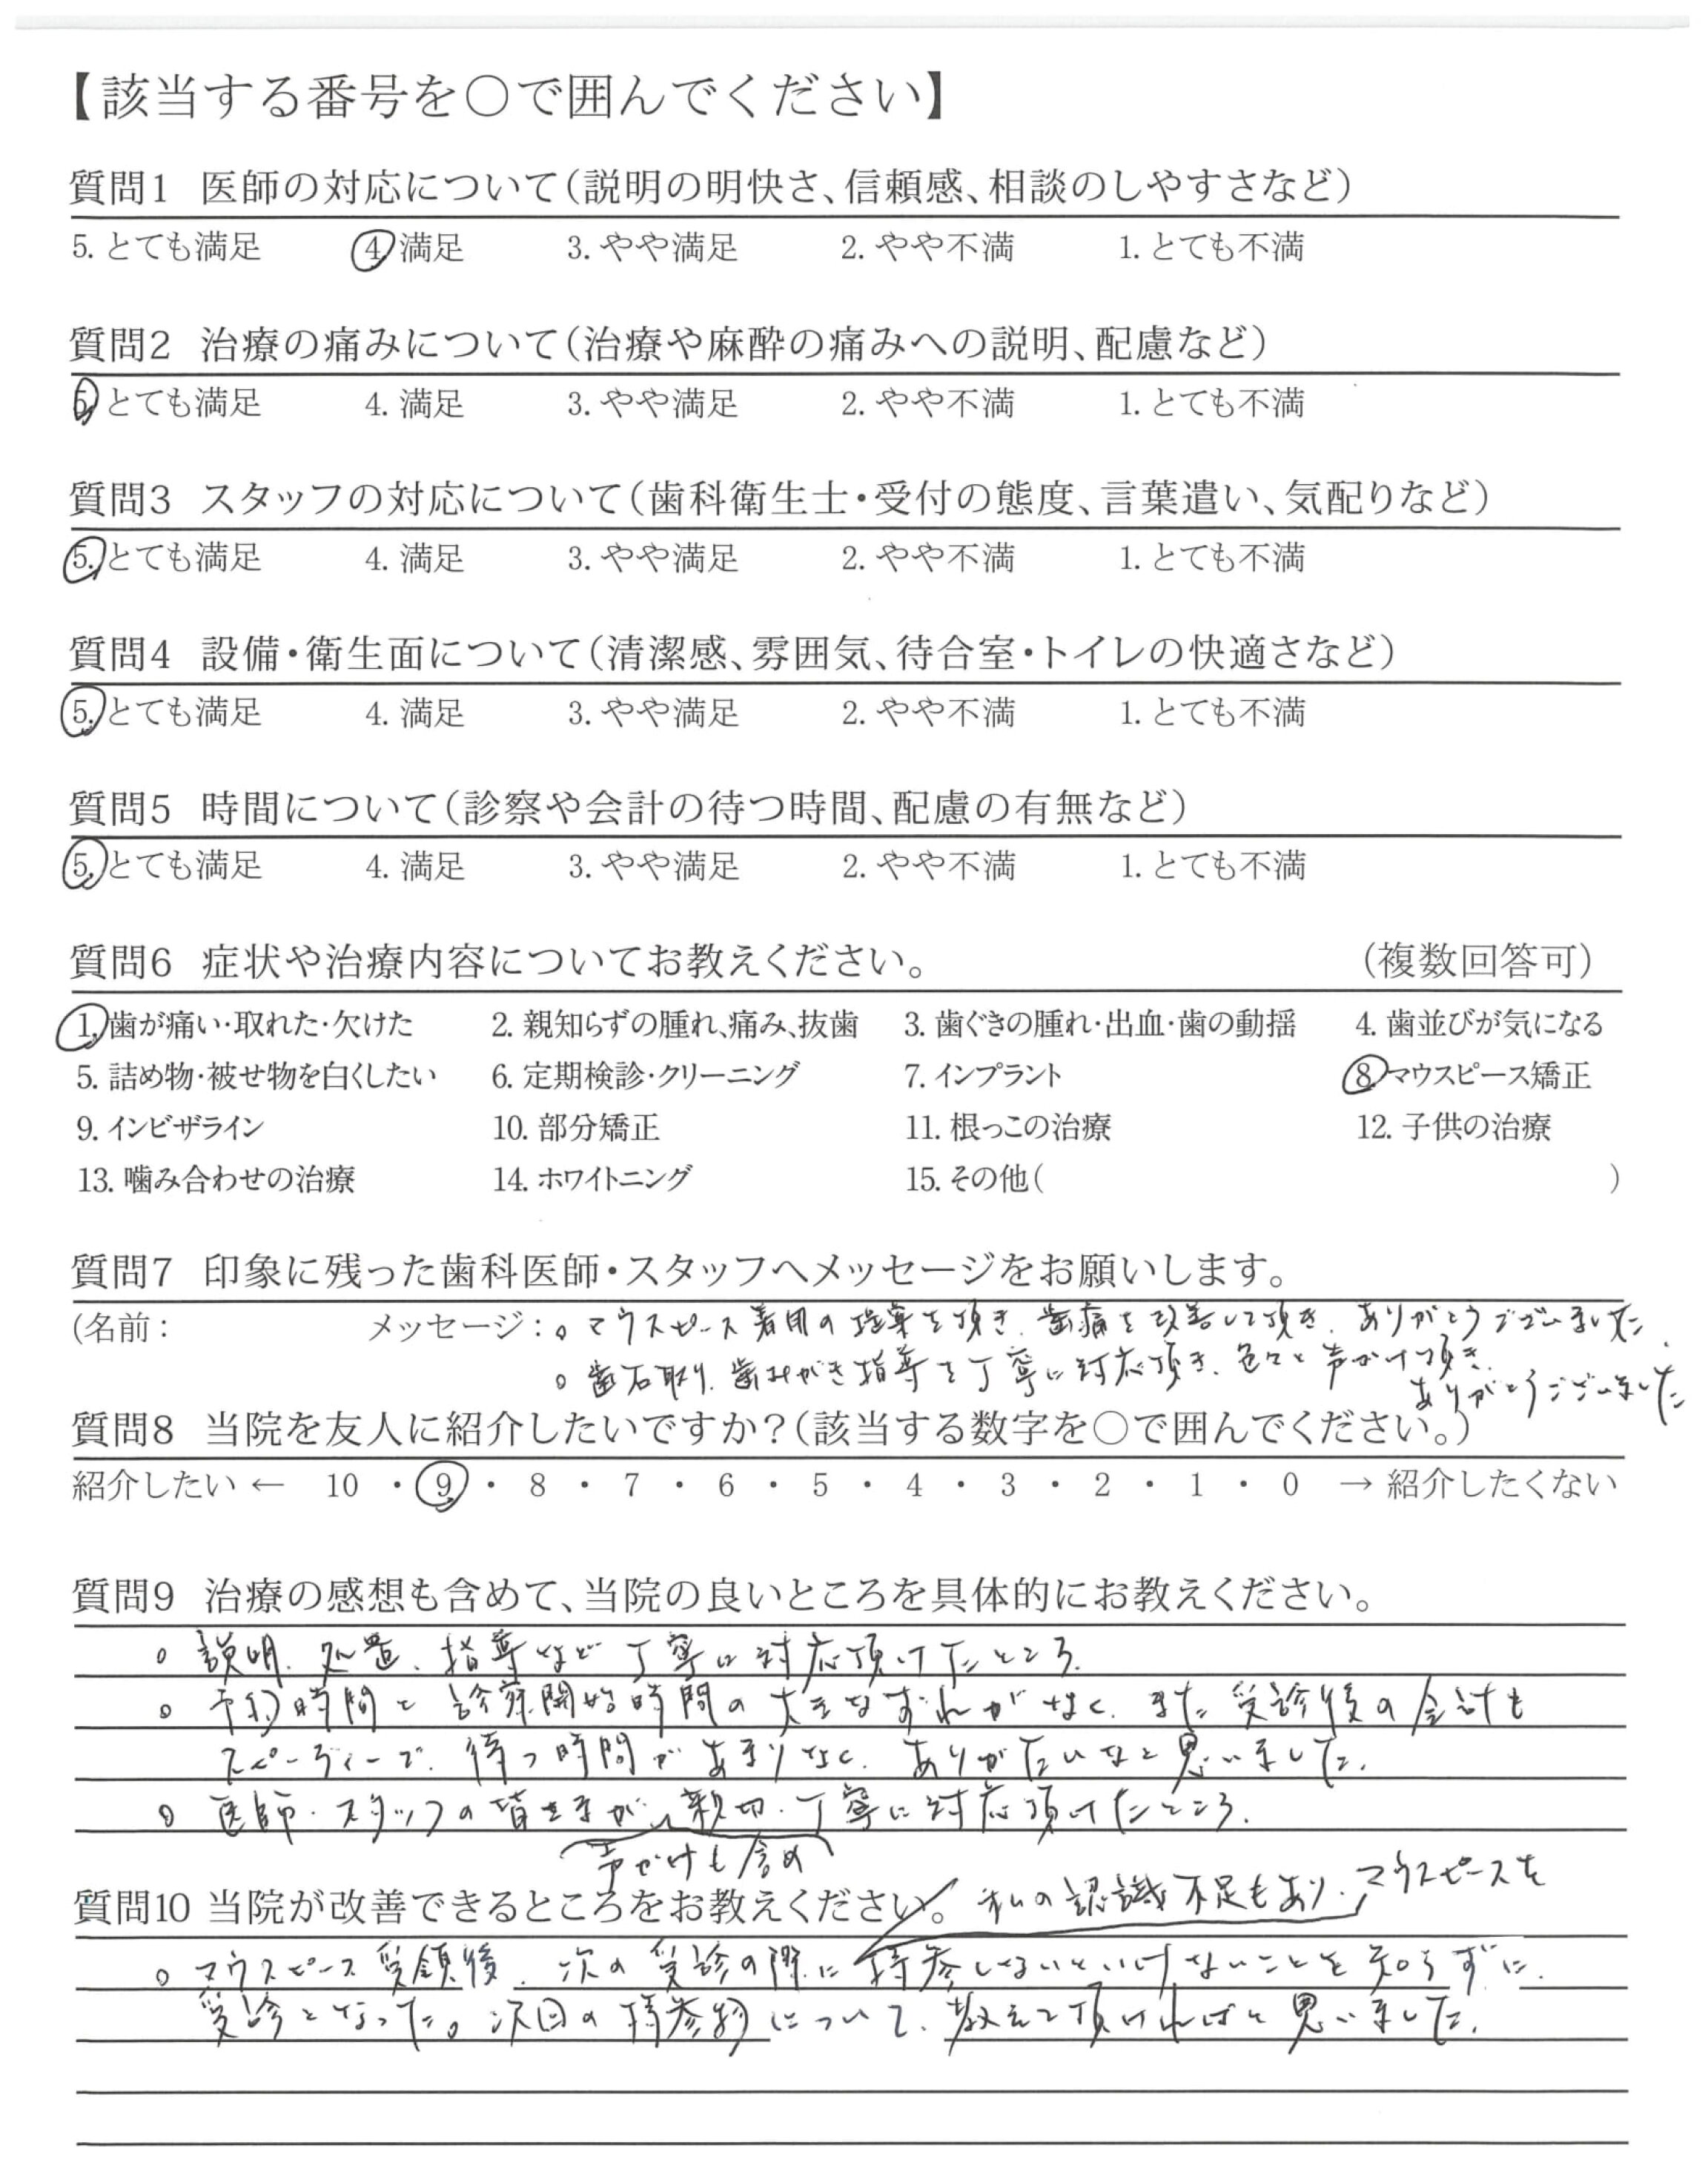 【該当する番号を○で囲んでください】
質問1 医師の対応について(説明の明快さ、信頼感、相談のしやすさなど)
5. とても満足 4. 満足 3. やや満足 2. やや不満 1. とても不満
質問2 治療の痛みについて(治療や麻酔の痛みへの説明、配慮など)
5. とても満足 4. 満足 3. やや満足 2. やや不満 1. とても不満
質問3 スタッフの対応について(歯科衛生士・受付の態度、言葉遣い、気配りなど)
5. とても満足 4. 満足 3. やや満足 2. やや不満 1. とても不満
質問4 設備・衛生面について(清潔感、雰囲気、待合室・トイレの快適さなど)
5. とても満足 4. 満足 3. やや満足 2. やや不満 1. とても不満
質問5 時間について(診察や会計の待つ時間、配慮の有無など)
5. とても満足 4. 満足 3. やや満足 2. やや不満 1. とても不満
質問6 症状や治療内容についてお教えください。 (複数回答可)
1. 歯が痛い・取れた・欠けた 2. 親知らずの腫れ、痛み、抜歯 3. 歯ぐきの腫れ・出血・歯の動揺 4. 歯並びが気になる
5. 詰め物・被せ物を白くしたい 6. 定期検診・クリーニング 7. インプラント 8. マウスピース矯正
9. インビザライン 10. 部分矯正 11. 根っこの治療 12. 子供の治療
13. 噛み合わせの治療 14. ホワイトニング 15. その他( )
質問7 印象に残った歯科医師・スタッフへメッセージをお願いします。
(名前: メッセージ: 。マウスピース着用の提案を頂き、歯痛を改善して頂き、ありがとうございました。
。歯石取り、歯みがき指導を丁寧に対応頂き、色々と声かけ頂き、
ありがとうございました
質問8 当院を友人に紹介したいですか?(該当する数字を○で囲んでください。)
紹介したい ← 10 ・ 9 ・ 8 ・ 7 ・ 6 ・ 5 ・ 4 ・ 3 ・ 2 ・ 1 ・ 0 → 紹介したくない
質問9 治療の感想も含めて、当院の良いところを具体的にお教えください。
。説明、処置、指導など丁寧に対応頂けたところ。
。予約時間と診察開始時間の大きなずれがなく、また受診後の会計も
スピーディーで、待つ時間があまりなく、ありがたいなと思いました。
。医師・スタッフの皆さまが、親切・丁寧に対応頂けたところ。
声かけも含め
質問10 当院が改善できるところをお教えください。 私の認識不足もあり、マウスピースを
。マウスピース受領後、次の受診の際に持参しないといけないことを知らずに、
受診となった。次回の持参物について、教えて頂ければと思いました。